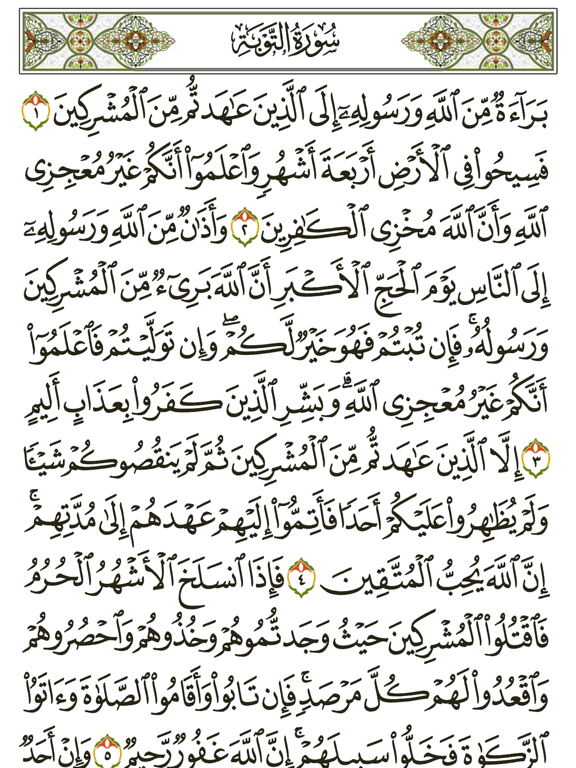 سُورَةُ التَّوۡبَةِ
بَرَآءَةٌ مِّنَ ٱللَّهِ وَرَسُولِهِۦٓ إِلَى ٱلَّذِينَ عَٰهَدتُّم مِّنَ ٱلۡمُشۡرِكِينَ ١
فَسِيحُواْ فِي ٱلۡأَرۡضِ أَرۡبَعَةَ أَشۡهُرٖ وَٱعۡلَمُوٓاْ أَنَّكُمۡ غَيۡرُ مُعۡجِزِي
ٱللَّهِ وَأَنَّ ٱللَّهَ مُخۡزِي ٱلۡكَٰفِرِينَ ٢ وَأَذَٰنٞ مِّنَ ٱللَّهِ وَرَسُولِهِۦٓ
إِلَى ٱلنَّاسِ يَوۡمَ ٱلۡحَجِّ ٱلۡأَكۡبَرِ أَنَّ ٱللَّهَ بَرِيٓءٞ مِّنَ ٱلۡمُشۡرِكِينَ
وَرَسُولُهُۥۚ فَإِن تُبۡتُمۡ فَهُوَ خَيۡرٞ لَّكُمۡۖ وَإِن تَوَلَّيۡتُمۡ فَٱعۡلَمُوٓاْ
أَنَّكُمۡ غَيۡرُ مُعۡجِزِي ٱللَّهِۗ وَبَشِّرِ ٱلَّذِينَ كَفَرُواْ بِعَذَابٍ أَلِيمٍ
٣ إِلَّا ٱلَّذِينَ عَٰهَدتُّم مِّنَ ٱلۡمُشۡرِكِينَ ثُمَّ لَمۡ يَنقُصُوكُمۡ شَيۡـٔٗا
وَلَمۡ يُظَٰهِرُواْ عَلَيۡكُمۡ أَحَدٗا فَأَتِمُّوٓاْ إِلَيۡهِمۡ عَهۡدَهُمۡ إِلَىٰ مُدَّتِهِمۡۚ
إِنَّ ٱللَّهَ يُحِبُّ ٱلۡمُتَّقِينَ ٤ فَإِذَا ٱنسَلَخَ ٱلۡأَشۡهُرُ ٱلۡحُرُمُ
فَٱقۡتُلُواْ ٱلۡمُشۡرِكِينَ حَيۡثُ وَجَدتُّمُوهُمۡ وَخُذُوهُمۡ وَٱحۡصُرُوهُمۡ
وَٱقۡعُدُواْ لَهُمۡ كُلَّ مَرۡصَدٖۚ فَإِن تَابُواْ وَأَقَامُواْ ٱلصَّلَوٰةَ وَءَاتَوُاْ
ٱلزَّكَوٰةَ فَخَلُّواْ سَبِيلَهُمۡۚ إِنَّ ٱللَّهَ غَفُورٞ رَّحِيمٞ ٥ وَإِنۡ أَحَدٞ